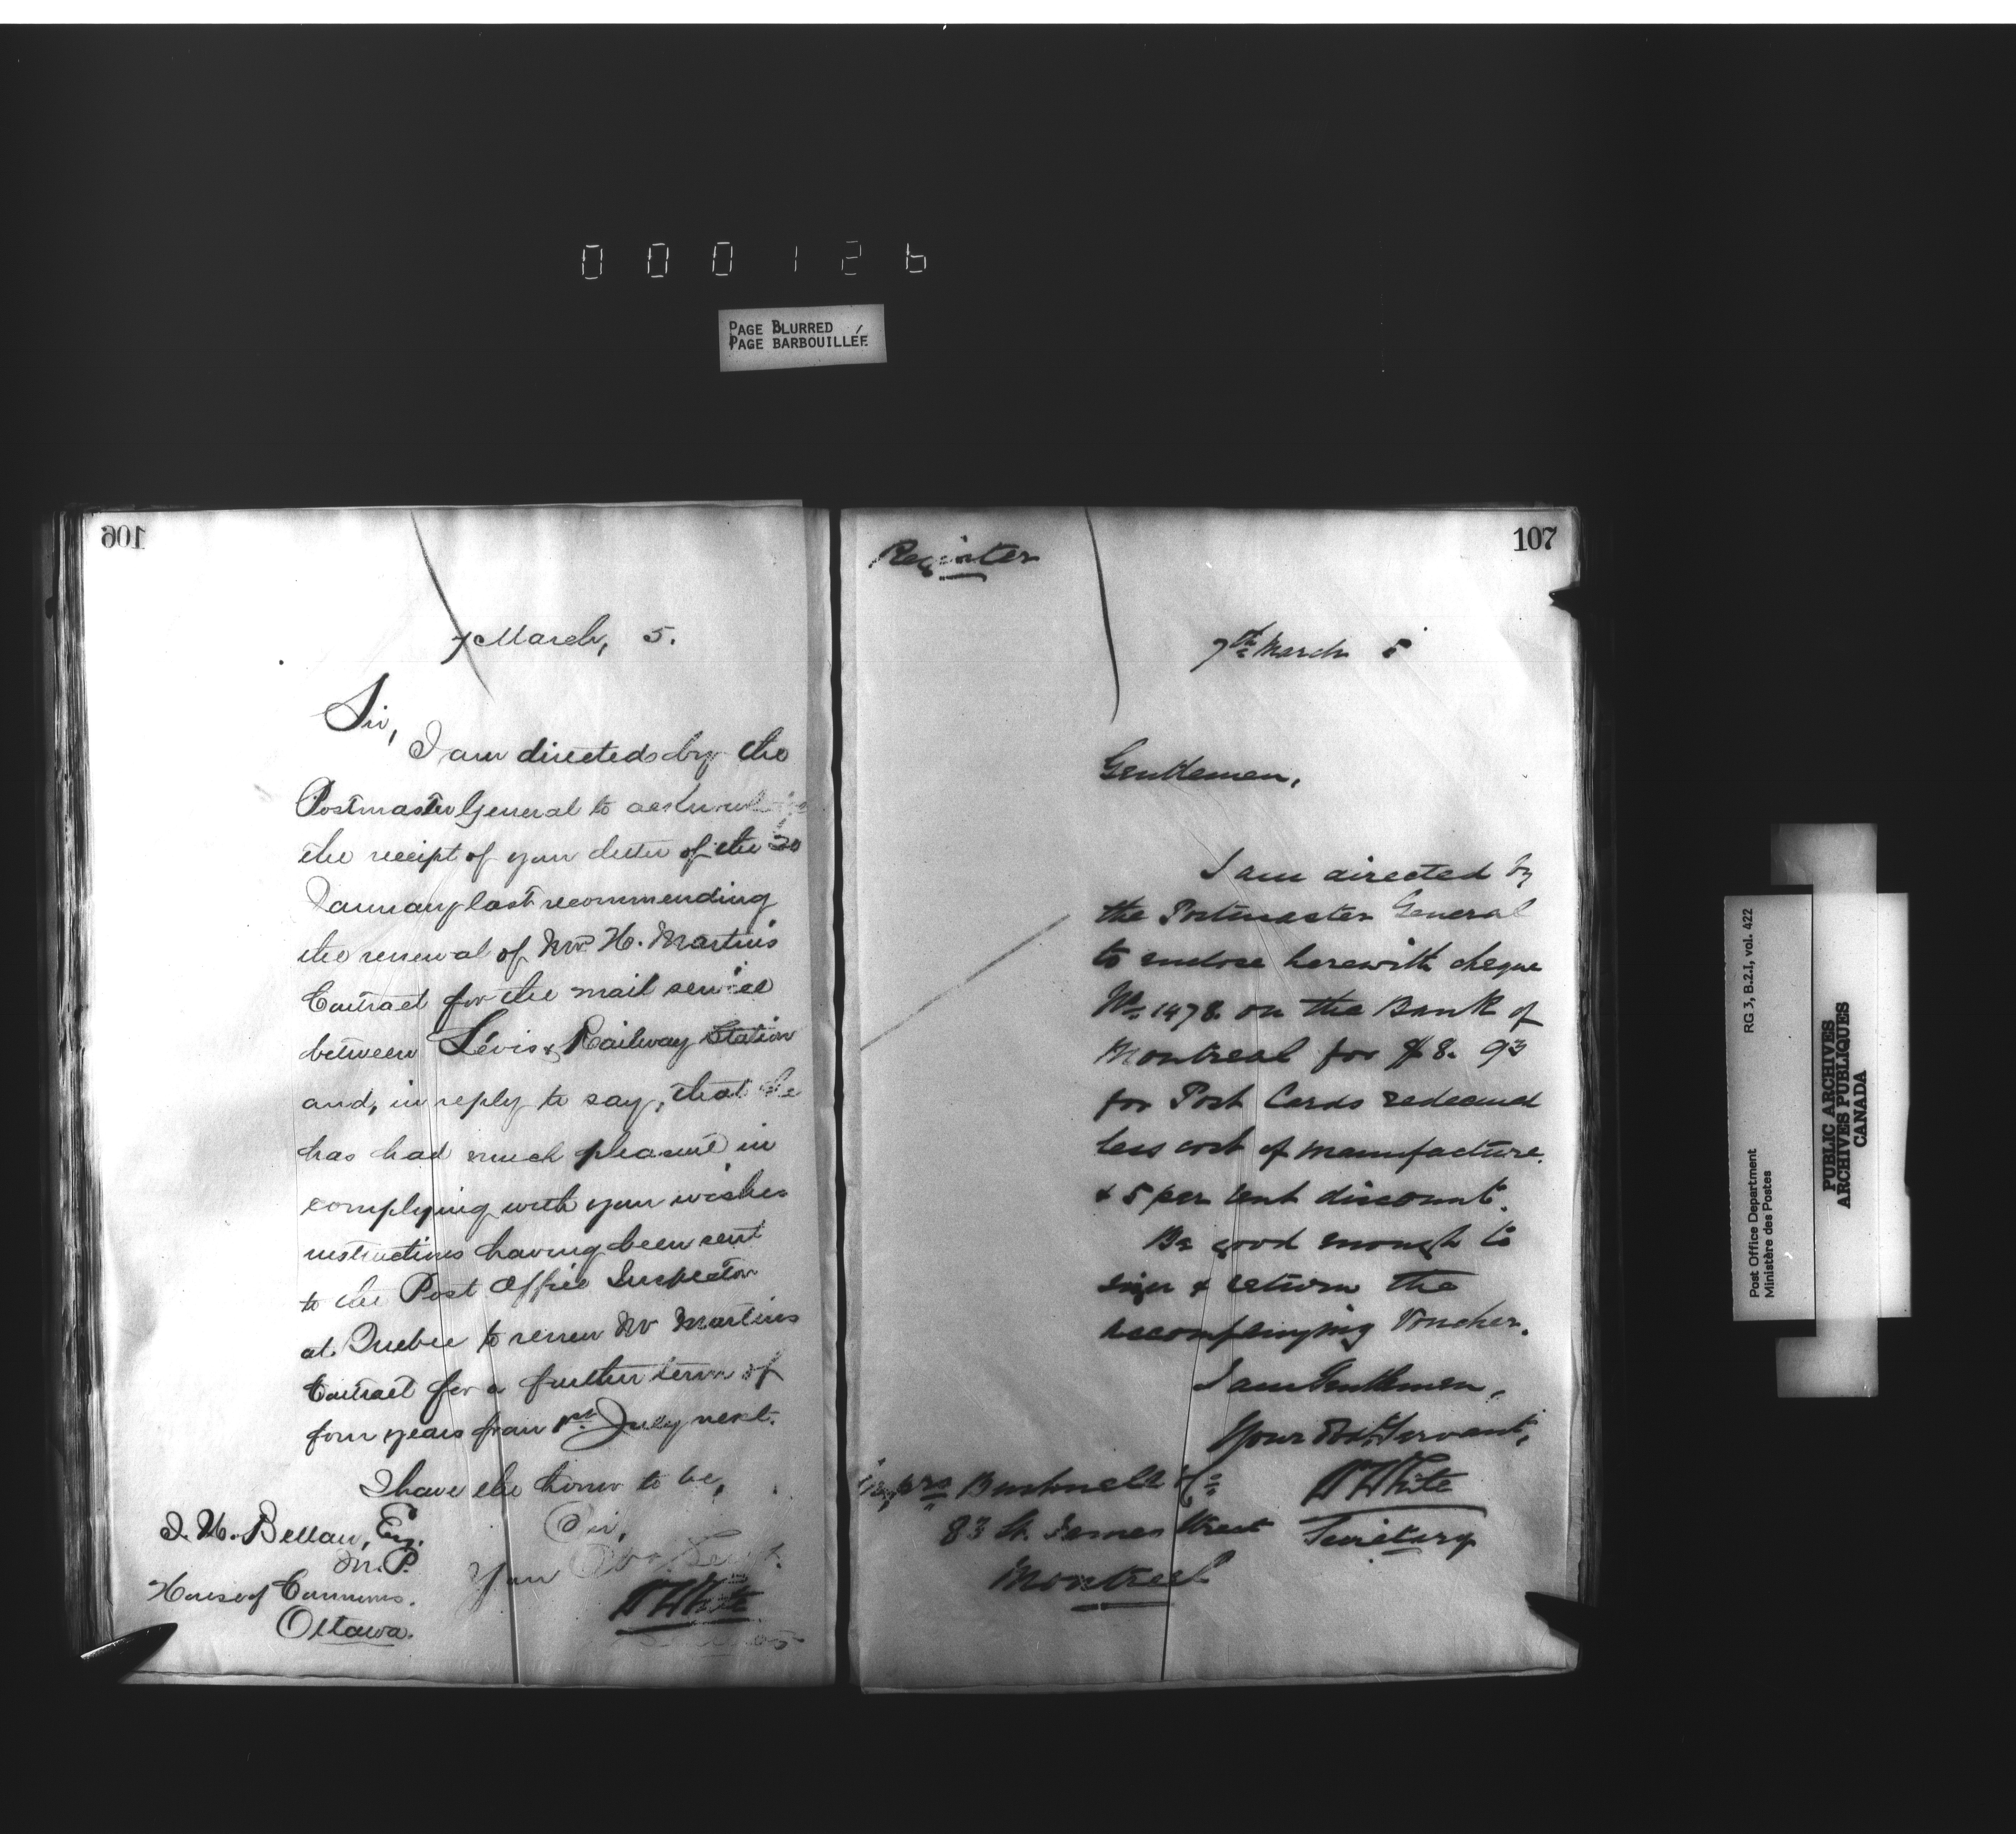 000126
PAGE BLURRED
PAGE BARBOUILLÉE
106
7 March, 5.
Sir,
I am directed by the
Postmaster General to acknowledge
the receipt of your letter of the 20
January last recommending
the renewal of Mr. H. Martin's
Contract for the mail service
between Lévis & Railway Station
and, in reply to say, that he
has had much pleasure in
complying with your wishes
instructions having been sent
to the Post Office Inspector
at Quebec to renew Mr Martins
Contract for a further term of
four years from 1st July next.
I have the honor to be,
Sir,
Your Obt Servt.
W H White
J. H. Bellau, Esq.
M.P.
House of Commons.
Ottawa.
107
Register
7th March 5
Gentlemen,
I am directed by
the Postmaster General
to enclose herewith cheque
No. 1478 on the Bank of
Montreal for $8.93
for Post Cards redeemed
less cost of manufacture
& 5 per cent discount.
Be good enough to
sign & return the
accompanying Voucher.
I am Gentlemen,
Your Obt. Servant,
W H White
Secretary
Messrs Bushnell & Co
83 St. James Street
Montreal
Post Office Department
Ministère des Postes
RG 3, B.2.I, vol. 422
PUBLIC ARCHIVES
ARCHIVES PUBLIQUES
CANADA